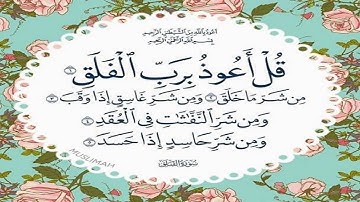 أعوذ بالله من الشيطن الرجيم
بسم الله الرحمن الرحيم
قُلْ أَعُوذُ بِرَبِّ ٱلْفَلَقِ ١
مِن شَرِّ مَا خَلَقَ ٢ وَمِن شَرِّ غَاسِقٍ إِذَا وَقَبَ ٣
وَمِن شَرِّ ٱلنَّفَّٰثَٰتِ فِي ٱلْعُقَدِ ٤
وَمِن شَرِّ حَاسِدٍ إِذَا حَسَدَ ٥
سُورَةُ الفَلَقِ
MUSLIMAH